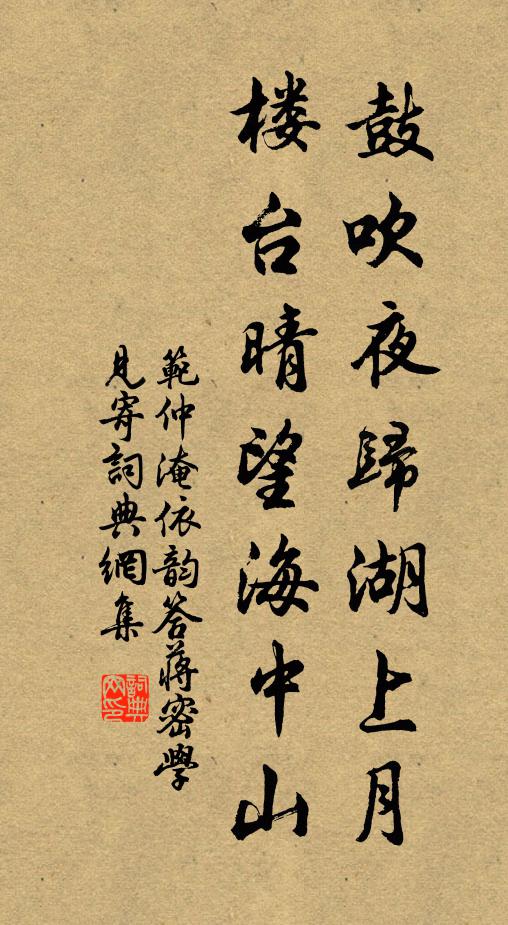 鼓吹夜歸湖上月
楼台晴望海中山
範仲淹依韵答蔣密學
見寄詞典網集
詞典